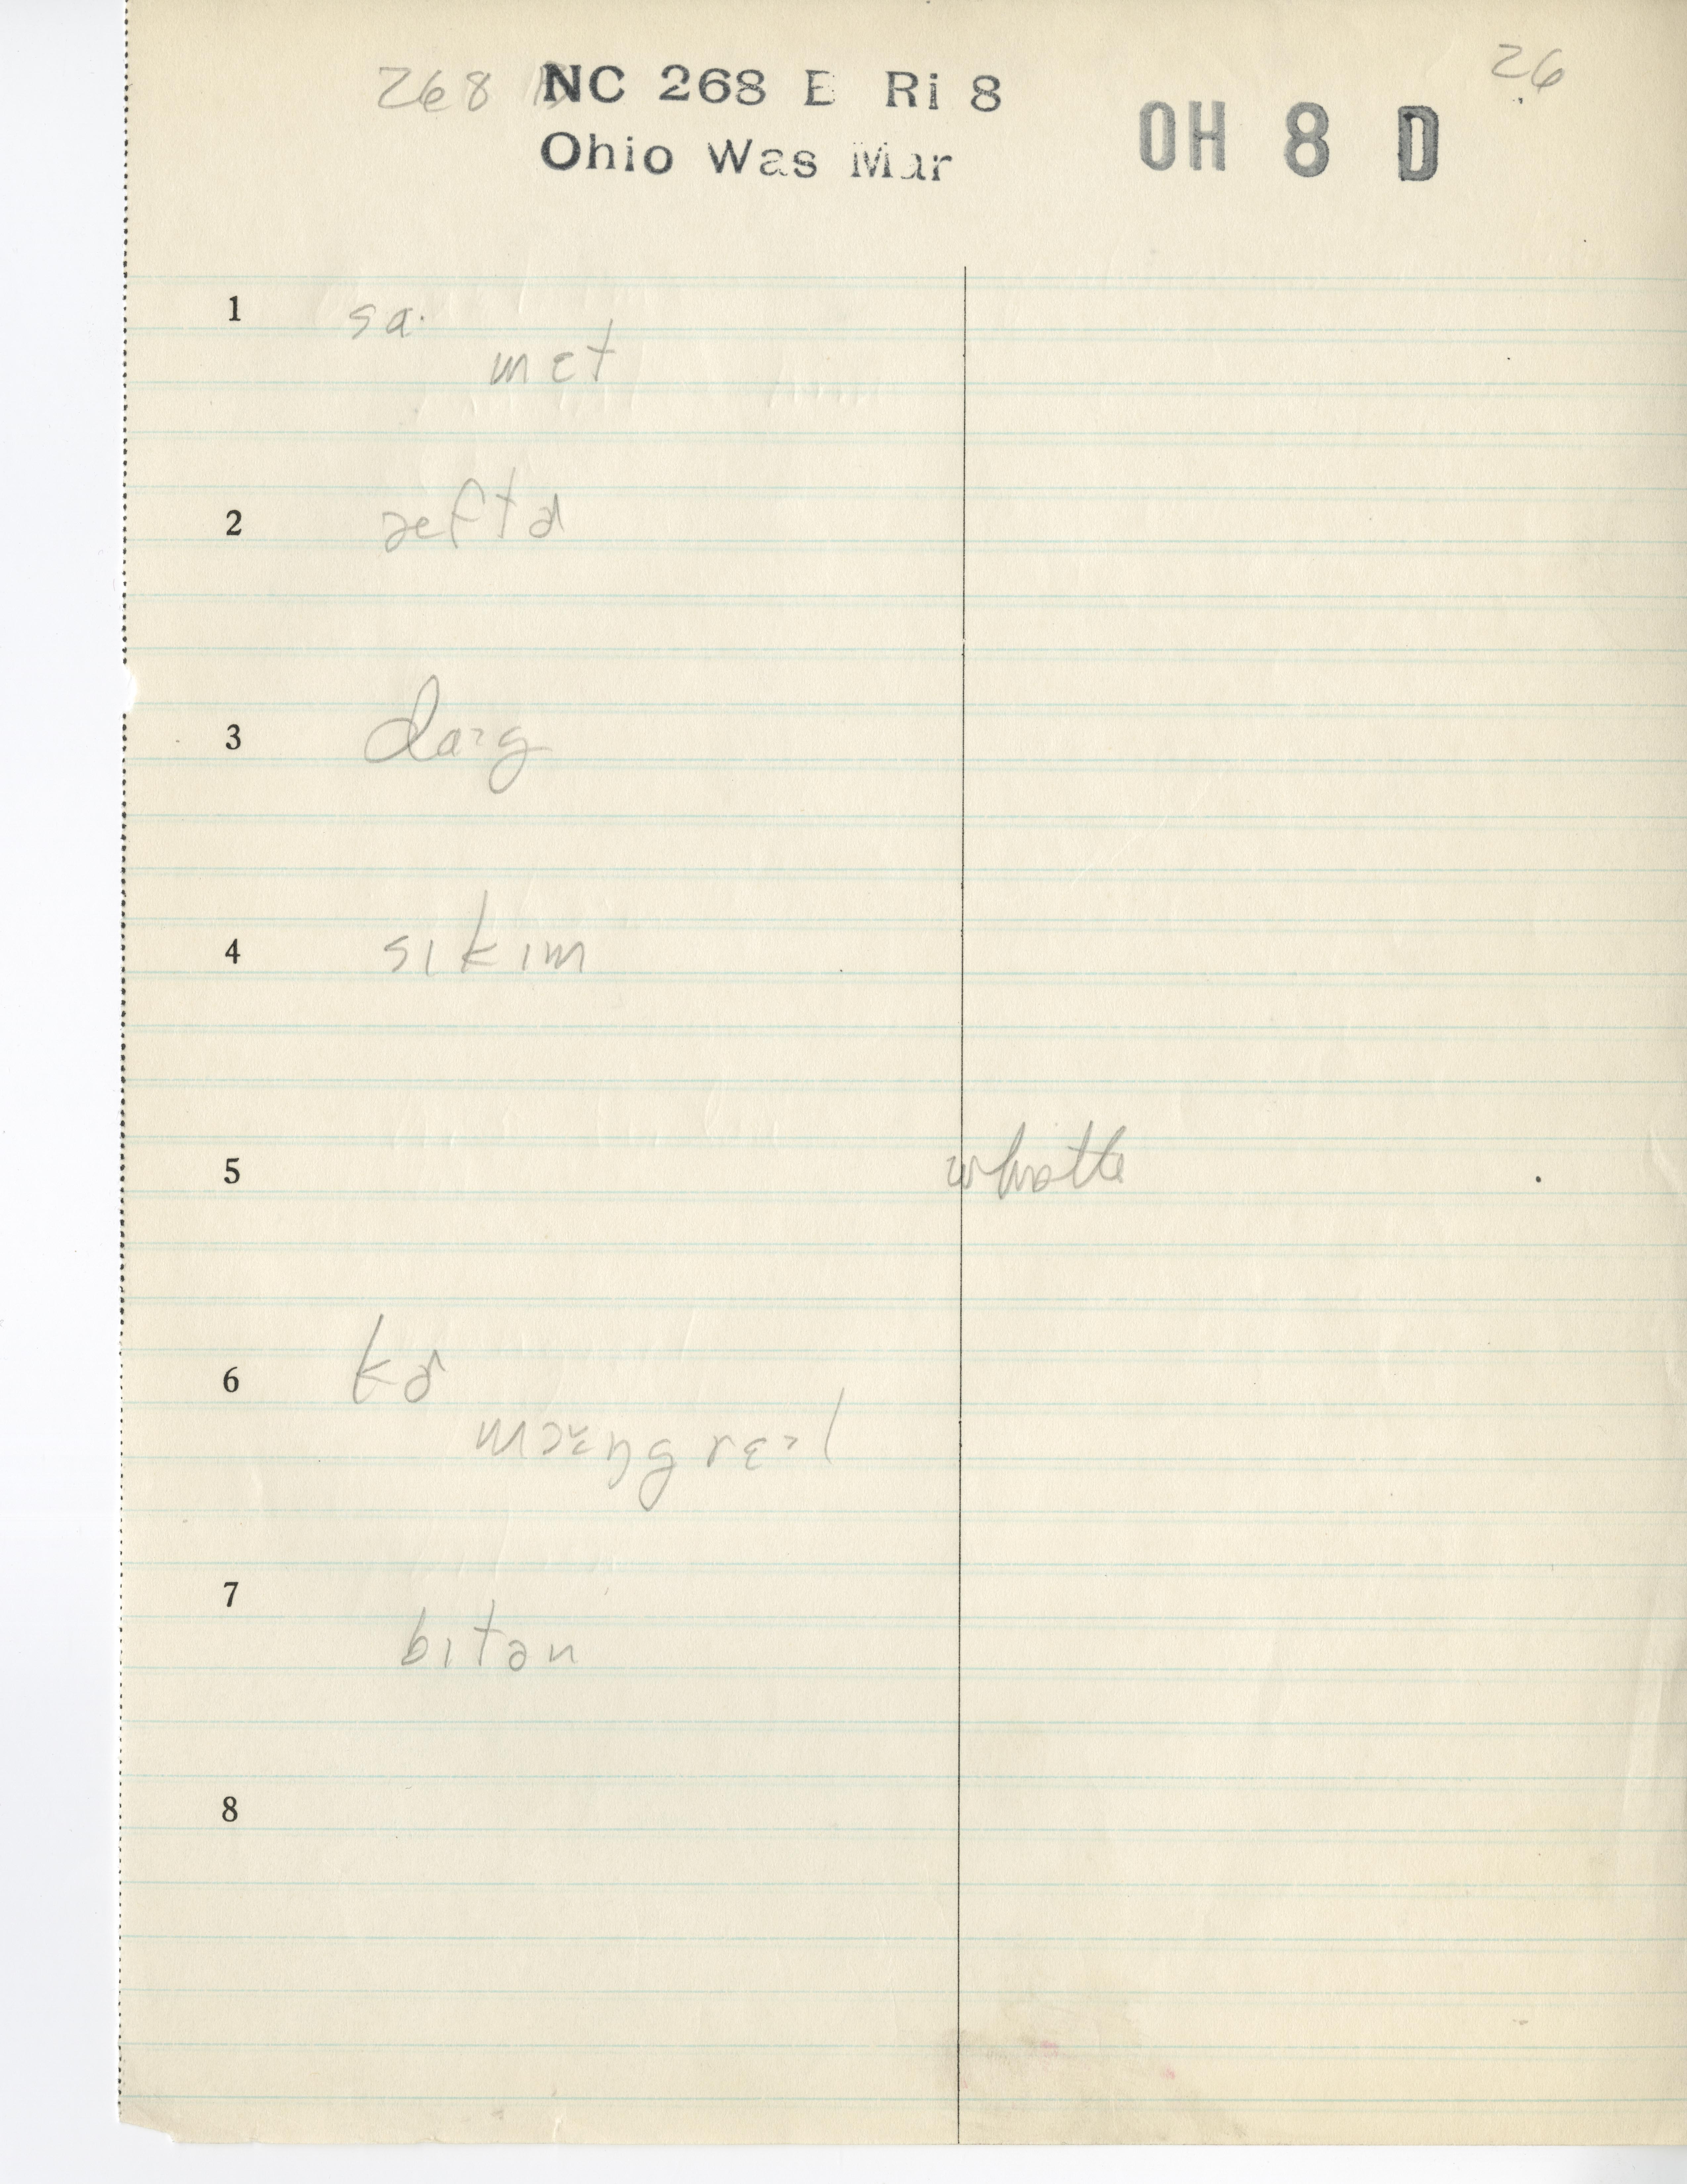 26
268 B NC 268 E Ri 8
OH 8 D
Ohio Was Mar
1 sa·
mɛt
2 æftɚ
3 dɑˑg
4 sɪkɪm
5 whistle
6 kɚ
7 bɪtən
8